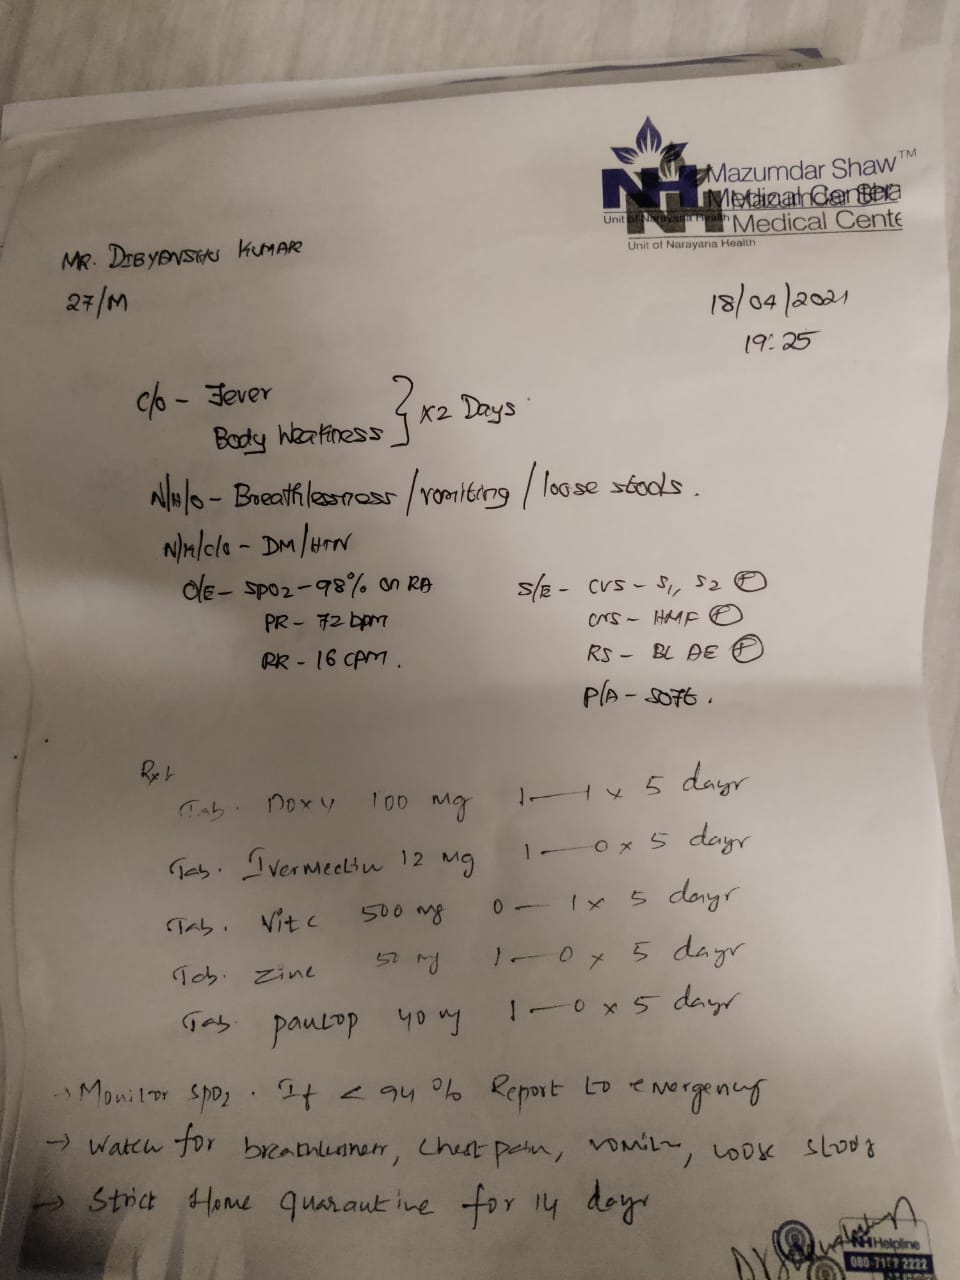 Mazumdar Shaw™
Medical Center
Unit of Narayana Health
Medical Cente
Unit of Narayana Health
MR. DIBYANSHU KUMAR
27/M
18/04/2021
19:25
C/o - Fever
Body Weakness } x2 Days
N/H/o - Breathlessness / vomiting / loose stools.
N/K/C/o - DM/HTN
O/E - SPO2 - 98% on RA
PR - 72 bpm
RR - 16 CPM.
S/E - CVS - S1, S2 (+)
CNS - HMF (+)
RS - BL AE (+)
P/A - soft.
Rx
Tab. Doxy 100 mg 1—1 x 5 days
Tab. Ivermectin 12 mg 1—0 x 5 days
Tab. Vit c 500 mg 0—1 x 5 days
Tab. Zinc 50 mg 1—0 x 5 days
Tab. pantop 40 mg 1—0 x 5 days
→ Monitor SpO2. If < 94 % Report to emergency
→ Watch for breathlessness, chest pain, vomiting, loose stools
→ Strict Home quarantine for 14 days
NH Helpline
2222